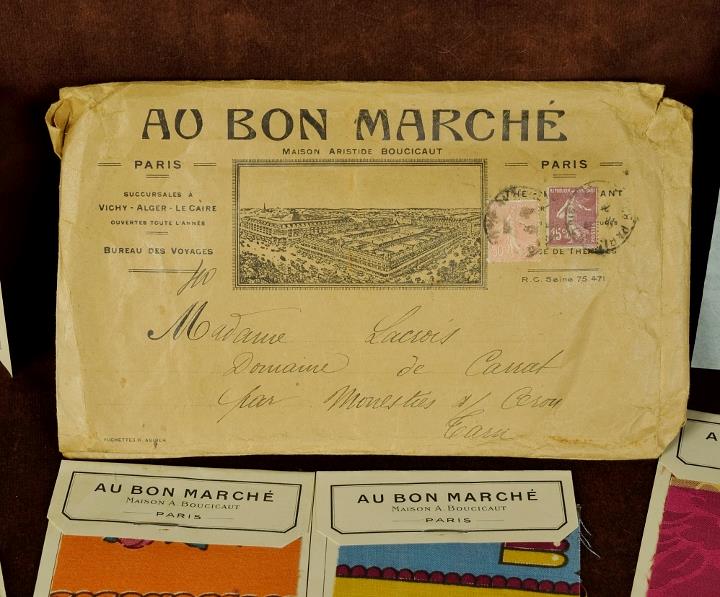 AU BON MARCHÉ
MAISON ARISTIDE BOUCICAUT
PARIS
SUCCURSALES À
VICHY - ALGER - LE CAIRE
OUVERTES TOUTE L'ANNÉE
BUREAU DES VOYAGES
PARIS
ANT
15c
R.C. Seine 75.471
Madame Lacrois
Domaine de Carrat
par Monestiés s/ Cérou
Tarn
AU BON MARCHÉ
MAISON A. BOUCICAUT
PARIS
AU BON MARCHÉ
MAISON A. BOUCICAUT
PARIS
AU
MAI